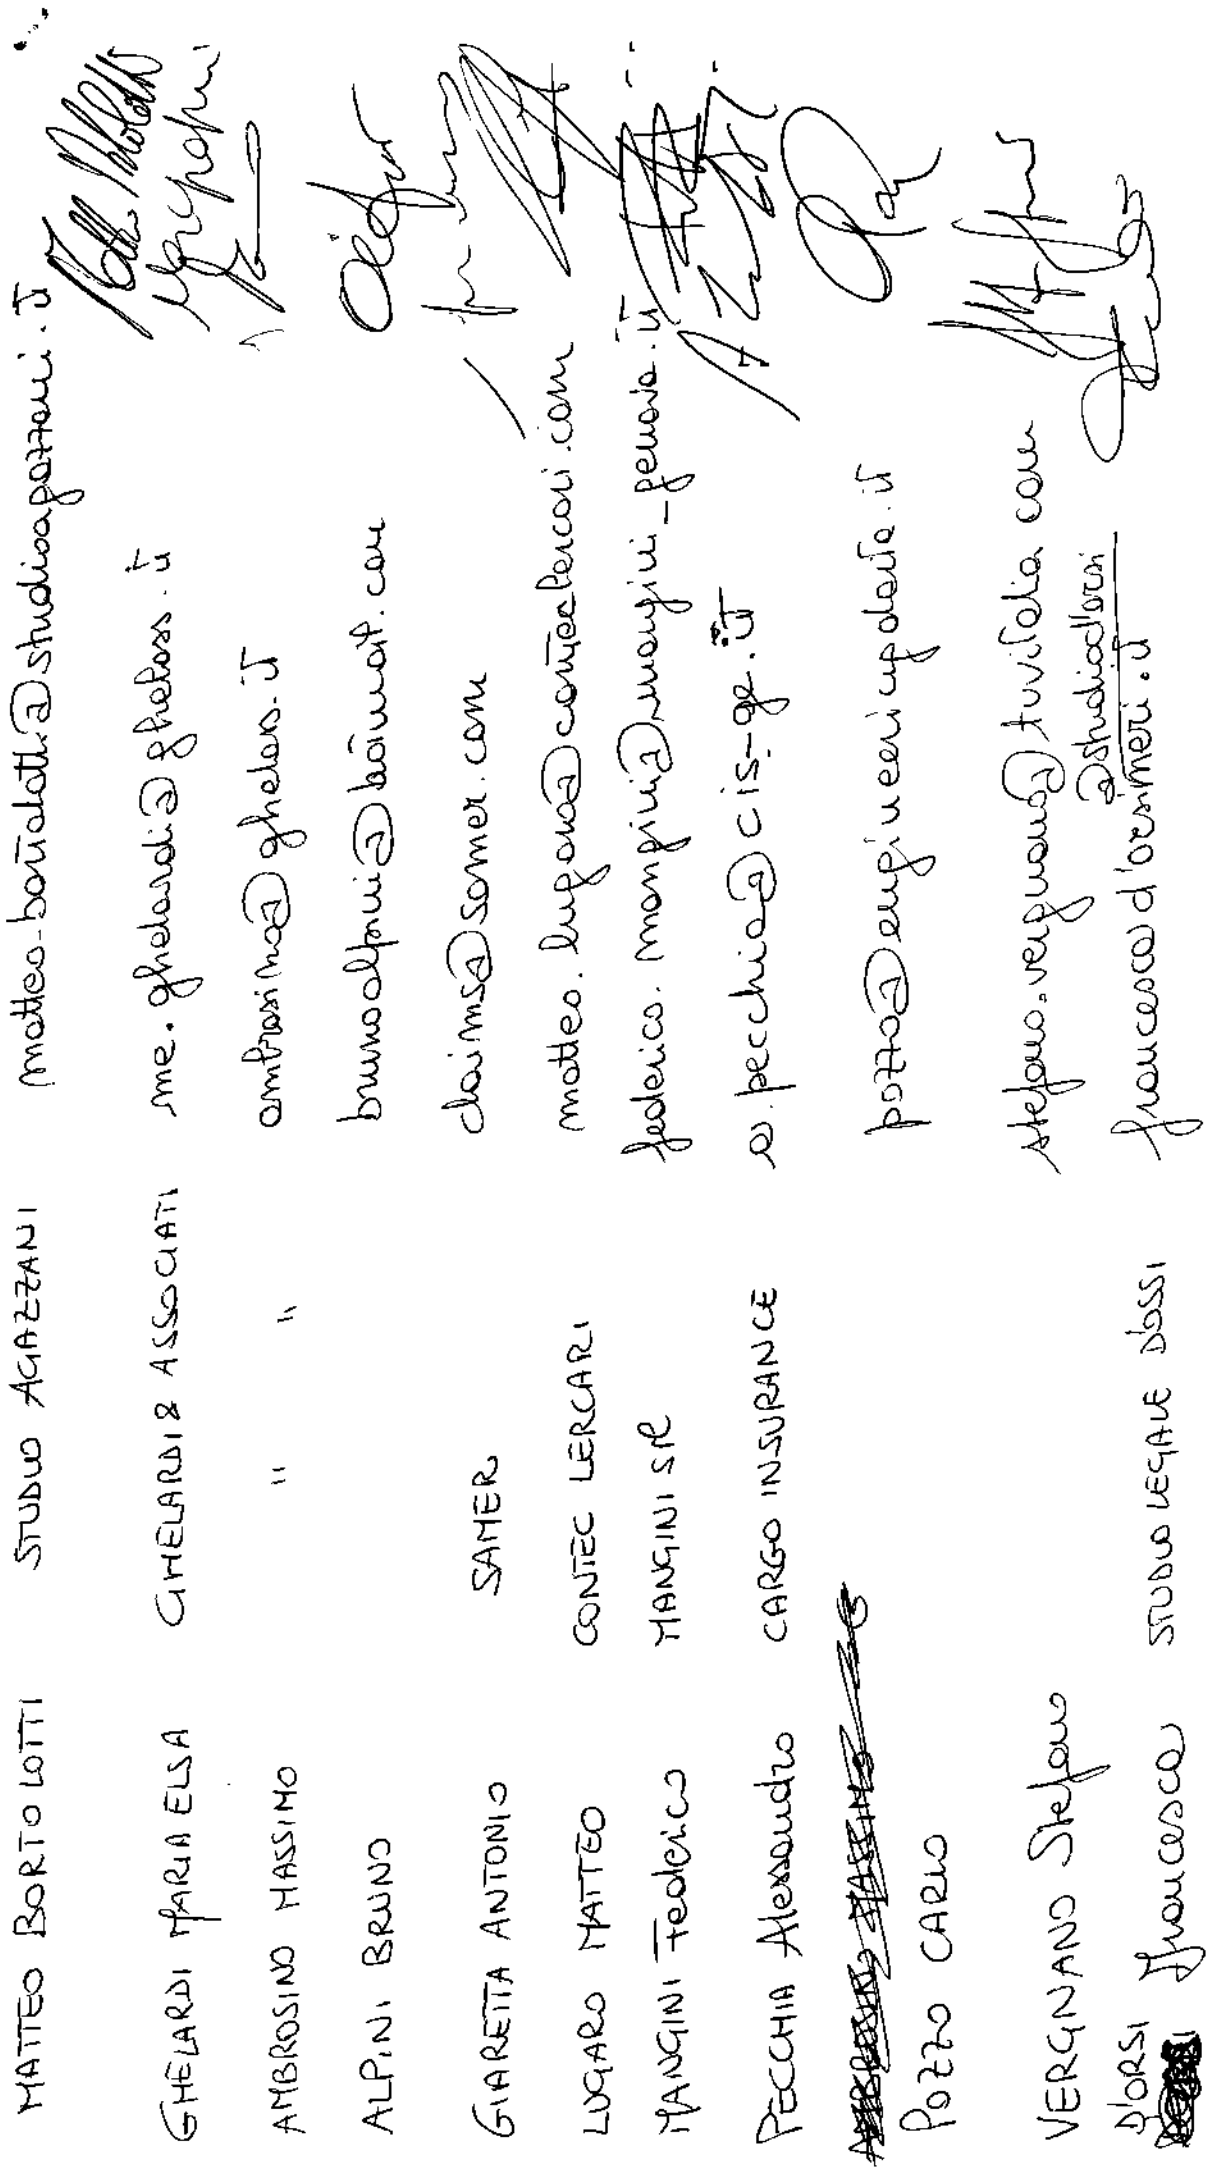 MATTEO BORTOLOTTI STUDIO AGAZZANI matteo.bortolotti@studioagazzani.it
GHELARDI MARIA ELSA GHELARDI & ASSOCIATI me.ghelardi@ghelass.it
AMBROSINO MASSIMO " " ambrosino@ghelass.it
ALPINI BRUNO brunoalpini@
GIARETTA ANTONIO SAMER claims@samer.com
LUGARO MATTEO CONTEC LERCARI matteo.lugaro@conteclercari.com
MANGINI Federico MANGINI SRL federico.mangini@mangini-genova.it
PECCHIA Alessandro CARGO INSURANCE a.pecchia@cis-ge.it
AMBROSINO MASSIMO
POZZO CARLO pozzo@
VERGNANO Stefano stefano.vergnano@tuvitalia com
@studiod'orsi
D'ORSI Francesca STUDIO LEGALE D'OSSI francesca d'orsimeri.it